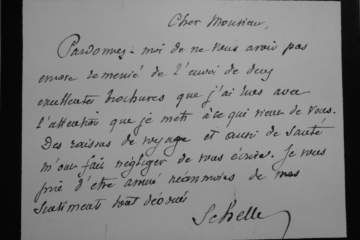 Cher Monsieur,
Pardonnez-moi de ne vous avoir pas
encore remercié de l'envoi de deux
excellentes brochures que j'ai lues avec
l'attention que je mets à ce qui vient de vous.
Des raisons de voyage et aussi de santé
m'ont fait négliger de vous écrire. Je vous
prie d'être assuré néanmoins de mes
sentiments tout dévoués
Schelle